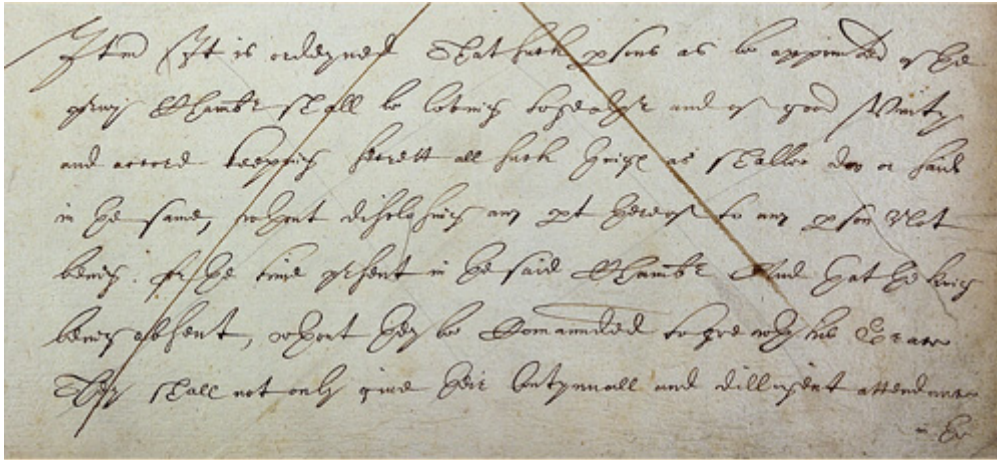 Itm It is ordeyned That such psons as be appointed of the
privy Chambr shall be loving together and of good Vnity
and accord keeping secrett all such things as shalbe don or said
in the same, wthout disclosing any pt thereof to any pson Not
being for the time present in the said Chambr And that the king
being absent, wthout they be Comannded to goe wth his Grace
They shall not only give their Contynuall and dilligent attendance
in the